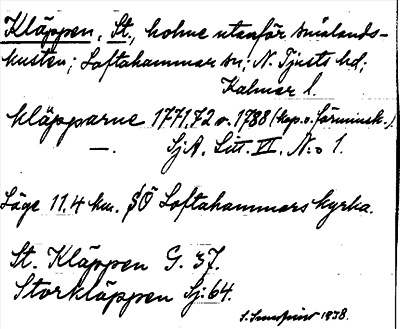 Kläppen, St., holme utanför smålands-
kusten; Loftahammar sn; N. Tjusts hd;
Kalmar l.
Kläpparne 1771,72 o. 1788 (kop. o. förminsk.)
—. SjA. Litt. VI. No 1.
Läge 11.4 km. SÖ Loftahammars kyrka.
St. Kläppen G. 37.
Storkläppen Sj: 64.
1938.